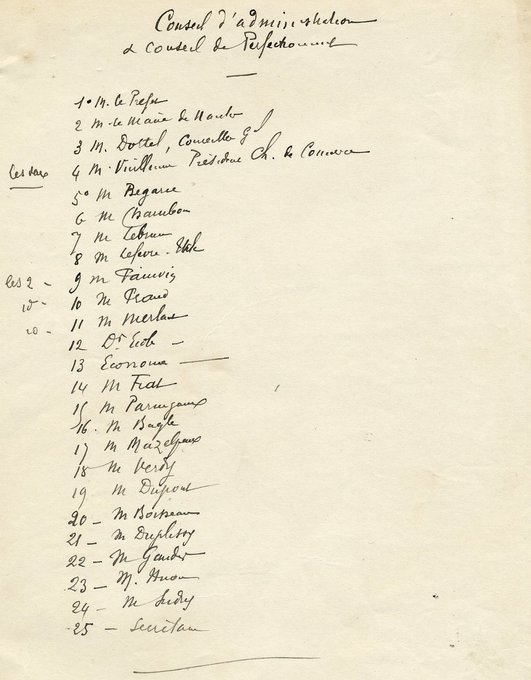 Conseil d'administration
& Conseil de Perfectionnemt
1° M. le Préfet
2 M. le Maire de Nantes
3 M. Dottel, Conseiller Gl
les deux 4 M. Président Ch. de Commerce
5° M Begarie
6 M Chambon
7 M Lebrun
8 M Lefevre-Utile
les 2 - 9 M
id - 10 M Picaud
id - 11 M Merlant
12 Dr Ecole -
13 Econome -
14 M Fiat
15 M Parmezaux
16. M Bugle
17 M
18 M Verdy
19 M Dupont
20 - M Boisseau
21 - M Duplessy
22 - M Gander
23 - M. Huon
24 - M Sudry
25 - Secrétaire